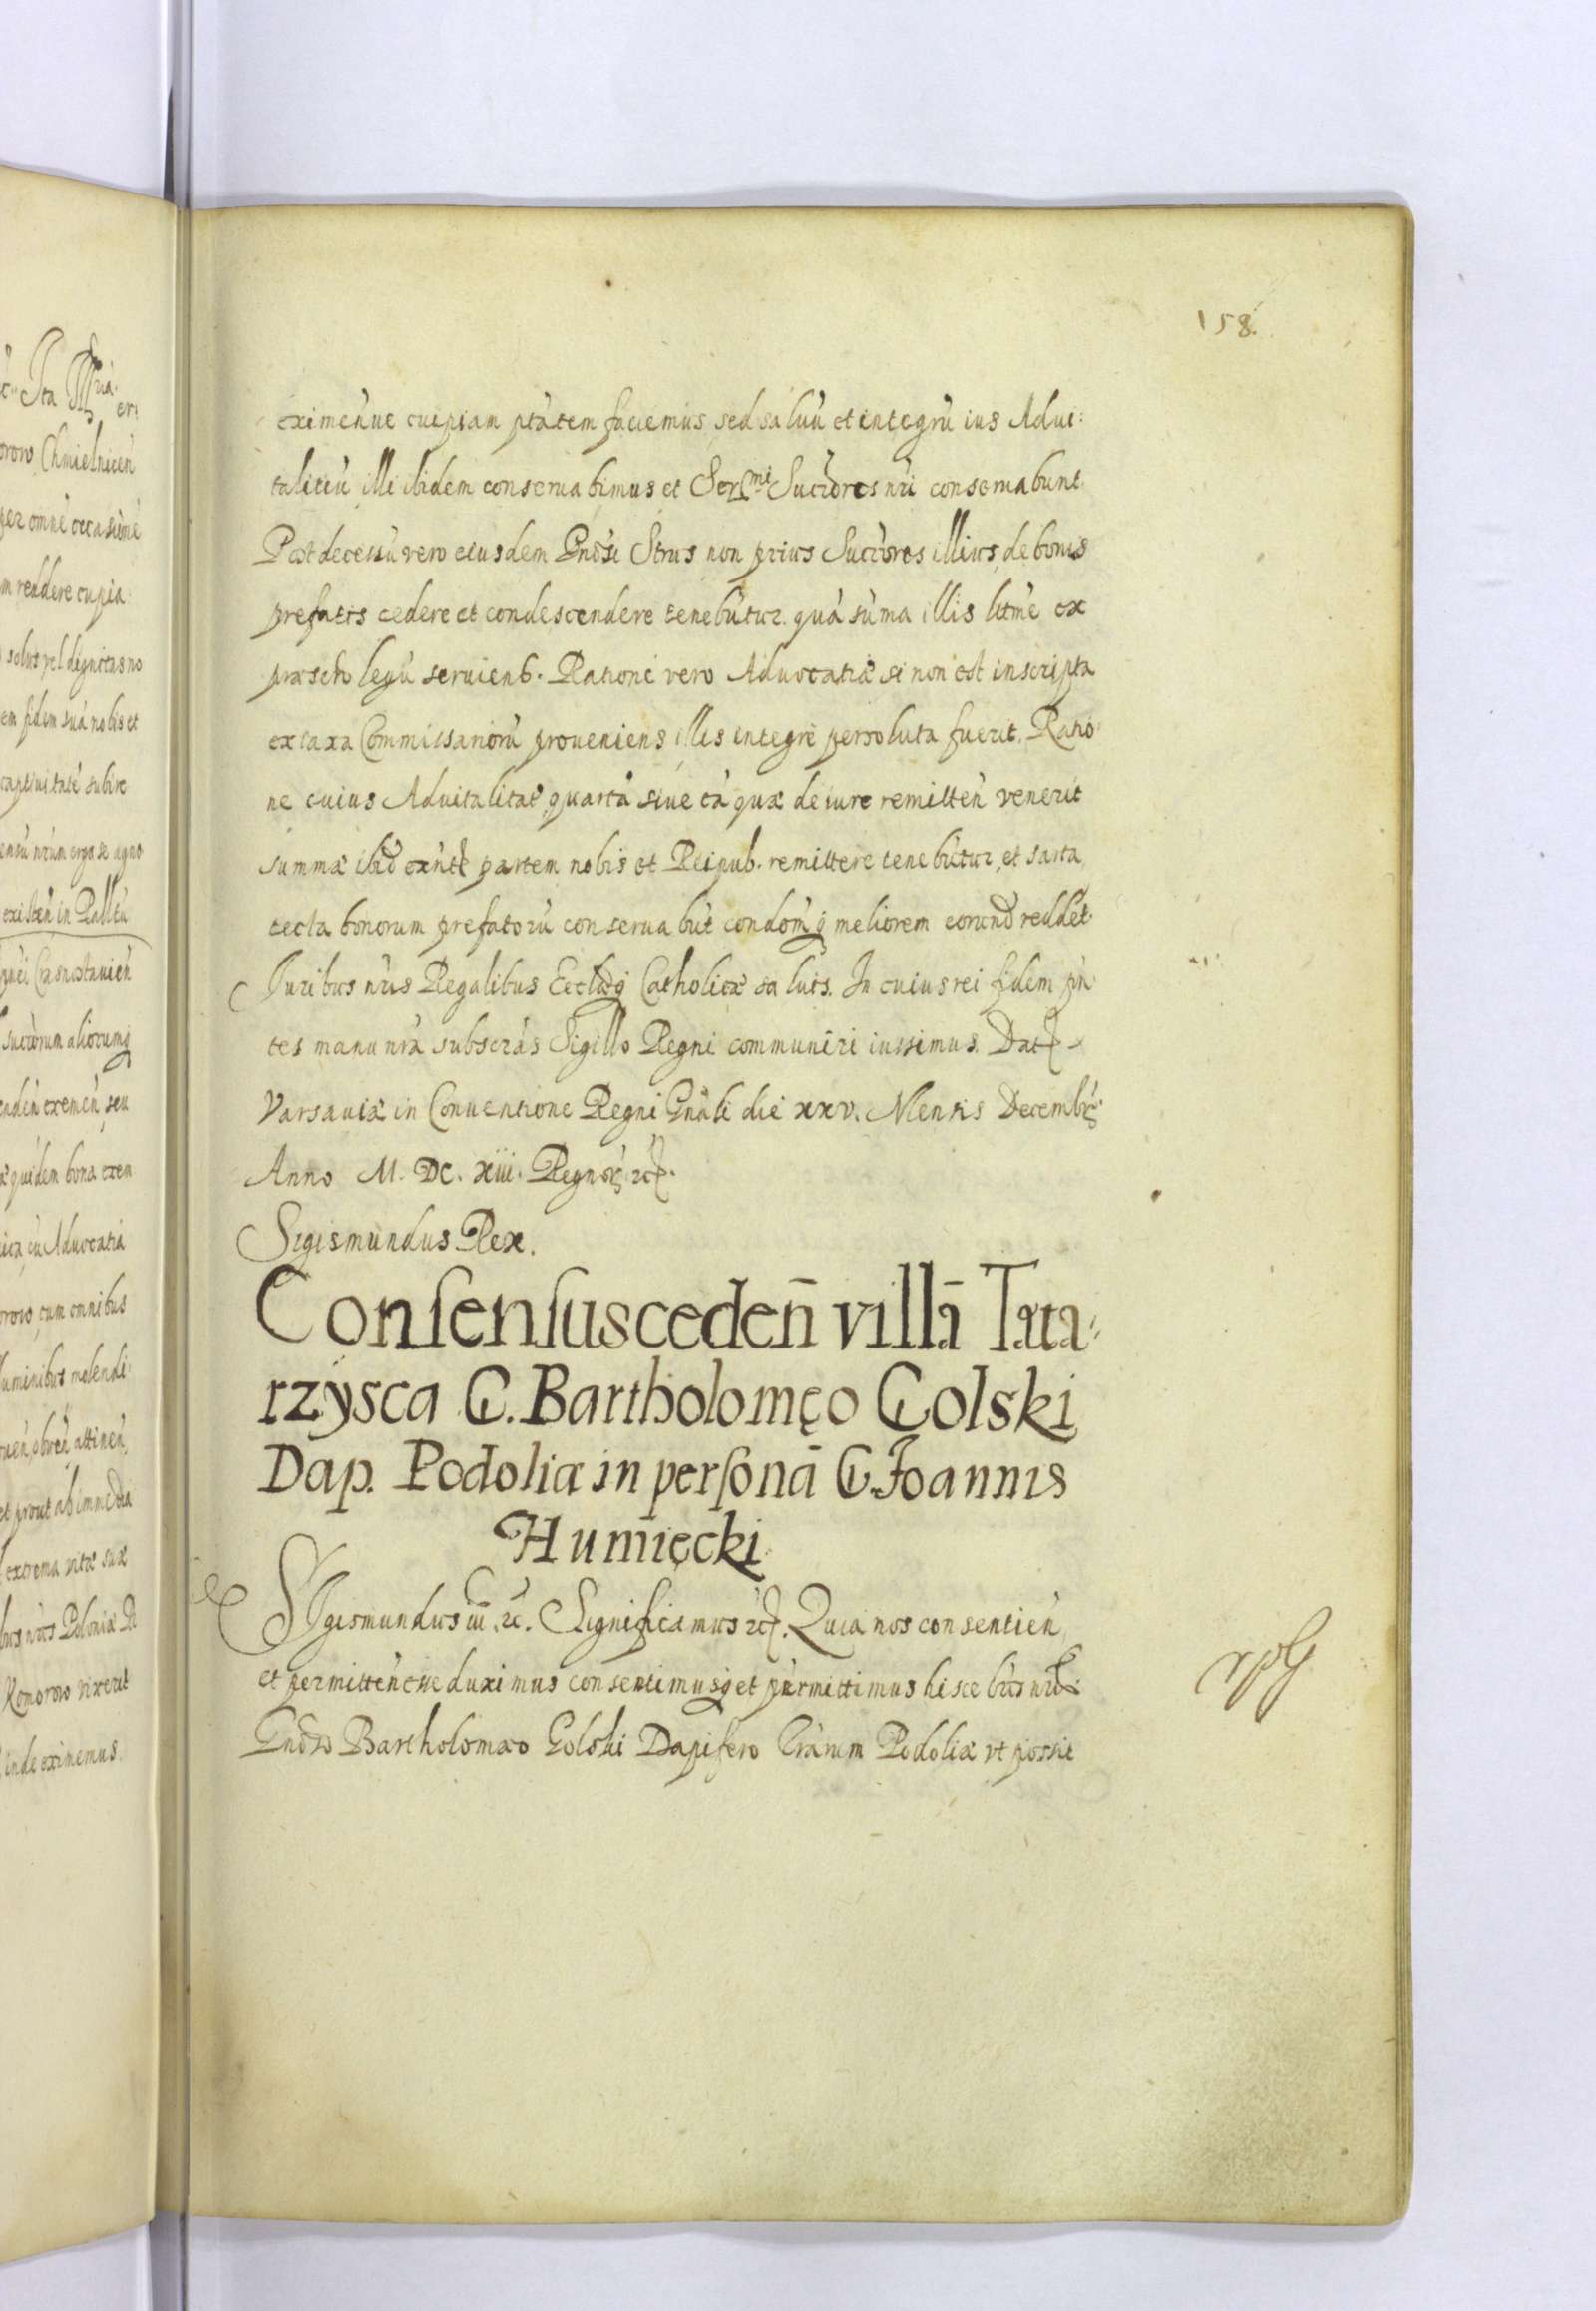 158.
eximen̄ue cuipiam ptātem faciemus, sed saluū et integrū ius Adui:
talitiū illi ibidem conseruabimus et Ser̄mi Succ̄ores nr̄i conseruabunt.
Post decessū vero eiusdem Gn̄osi Strus non prius Succ̄ores illius de bonis
prefatis cedere et condescendere tenebūtur. quā sūma illis litm̄e ex
præscr̄ legū seruien̄. Ratione vero Aduocatiæ si non est inscripta
ex taxa Commissariorū proueniens illis integrè persoluta fuerit. Ratio
ne cuius Aduitalitat̄ quartā siue eā quæ de iure remitten̄ venerit
summæ ibid̄ exn̄tis partem nobis et Reipub. remittere tenebūtur, et sarta
tecta bonorum prefatorū conseruabūt condōmq̨ meliorem eorund̄ reddēt.
Iuribus nr̄is Regalibus Eccl̄æq̨ Catholicæ saluis. In cuius rei fidem pn̄
tes manu nr̄a subscr̄as Sigillo Regni communiri iussimus. Dat
Varsauiæ in Conuentione Regni Gn̄ali die xxv. Mensis Decembr̄
Anno M. DC. xiii. Regnor̄ etc.
Sigismundus Rex.
Conſenſus ceden̄ villā Tata-
rzÿsca G. Bartholomęo Golski
Dap. Podoliæ in perſonā G. Joannis
Humięcki
SIgismundus iii. etc. Significamus etc. Quia nos consentien̄
et permitten̄ esse duximus consentimusq̨ et permittimus hisce lr̄is nr̄is
Gn̄oso Bartholomæo Golski Dapifero Tr̄arum Podoliæ vt possit
Ita
Chmielnicen̄
per omnē occasionē
m reddere cupia
solus vel dignitas no
em fidem suā nobis et
captiuitatē subire
ensū nr̄um ergo se agno
existen̄ in Palltū
Crasnostauien̄
succ̄orum aliorumq̨
caden̄ exemen̄, seu
æ quidem bona exem
ica cū Aduocatia
orow cum omnibus
luminibus molendi
attinen̄
et prout ab immedia
extrema vitæ suæ
bus nr̄is Poloniæ D
Komorowo vixerit
inde eximemus.